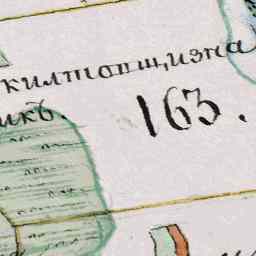 килтовщизна
икъ.
163.